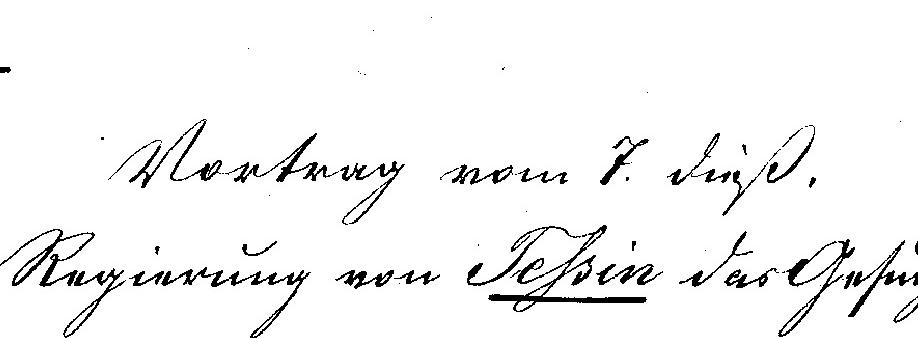 Vortrag vom 7. dieß.
Regierung von Tessin das Gesu